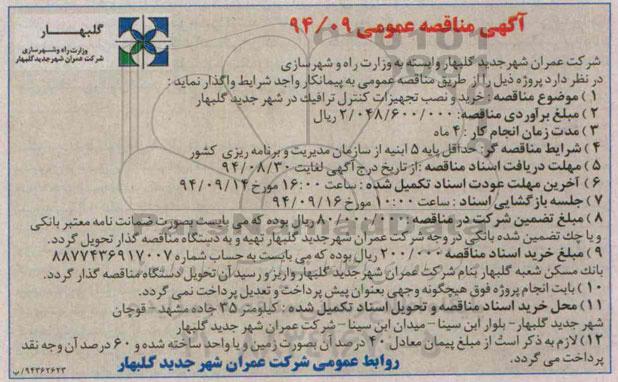 آگهی مناقصه عمومی ۹۴/۰۹
گلبهار
وزارت راه و شهرسازی
شرکت عمران شهر جدید گلبهار
شرکت عمران شهر جدید گلبهار وابسته به وزارت راه و شهرسازی
در نظر دارد پروژه ذیل را از طریق مناقصه عمومی به پیمانکار واجد شرایط واگذار نماید :
۱ ) موضوع مناقصه : خرید و نصب تجهیزات کنترل ترافیک در شهر جدید گلبهار
۲ ) مبلغ برآوردی مناقصه: ۲/۰۴۸/۶۰۰/۰۰۰ ریال
۳ ) مدت زمان انجام کار : ۴ ماه
۴ ) شرایط مناقصه گر: حداقل پایه ۵ ابنیه از سازمان مدیریت و برنامه ریزی کشور
۵ ) مهلت دریافت اسناد مناقصه :از تاریخ درج آگهی لغایت ۹۴/۰۸/۳۰
۶ ) آخرین مهلت عودت اسناد تکمیل شده : ساعت ۱۶:۰۰ مورخ ۹۴/۰۹/۱۴
۷ ) جلسه بازگشایی اسناد : ساعت ۱۰:۰۰ مورخ ۹۴/۰۹/۱۶
۸ ) مبلغ تضمین شرکت در مناقصه : ۸۰/۰۰۰/۰۰۰ ریال بوده که می بایست بصورت ضمانت نامه معتبر بانکی
و یا چک تضمین شده بانکی در وجه شرکت عمران شهر جدید گلبهار تهیه و به دستگاه مناقصه گذار تحویل گردد.
۹ ) مبلغ خرید اسناد مناقصه : ۲۰۰/۰۰۰ ریال بوده که می بایست به حساب شماره ۸۸۷۷۴۳۶۹۱۷۰۰۷
بانک مسکن شعبه گلبهار بنام شرکت عمران شهر جدید گلبهار واریز و رسید آن تحویل دستگاه مناقصه گذار گردد.
۱۰ ) بابت انجام پروژه فوق هیچگونه وجهی بعنوان پیش پرداخت و تعدیل پرداخت نمی گردد.
۱۱ ) محل خرید اسناد مناقصه و تحویل اسناد تکمیل شده : کیلومتر ۳۵ جاده مشهد - قوچان
شهر جدید گلبهار - بلوار ابن سینا - میدان ابن سینا - شرکت عمران شهر جدید گلبهار
۱۲ ) لازم به ذکر است از مبلغ پیمان معادل ۴۰ درصد آن بصورت زمین و یا واحد ساخته شده و ۶۰ درصد آن وجه نقد
پرداخت می گردد.
روابط عمومی شرکت عمران شهر جدید گلبهار
۹۴۳۶۲۶۲۳/پ